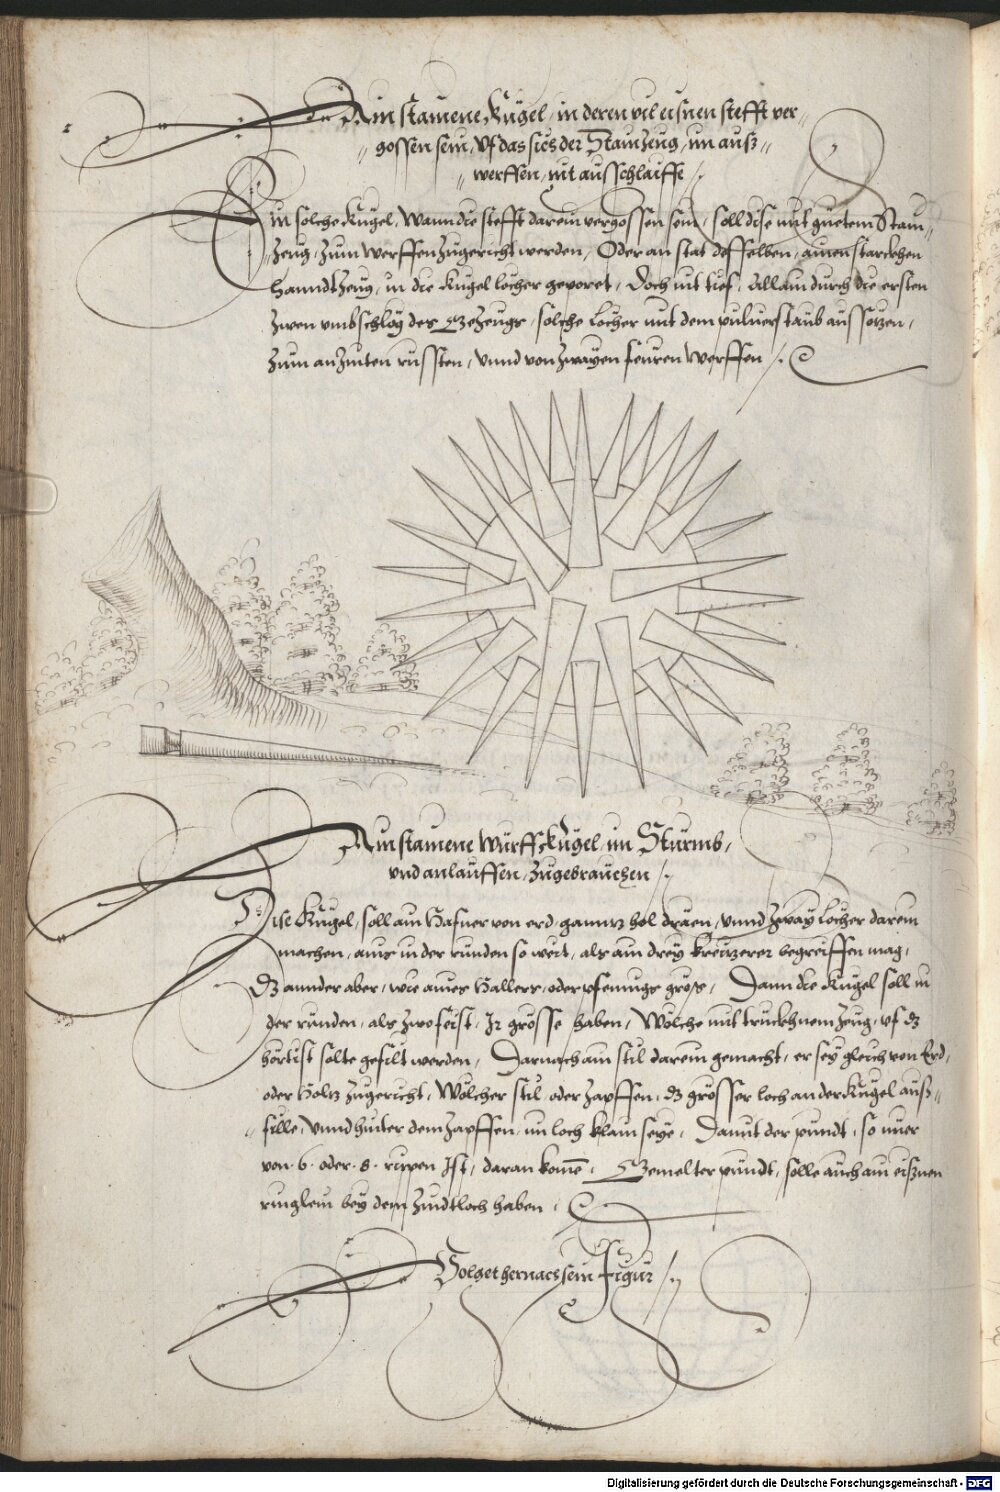 Ain stainene Kugel, in deren vil eisnen stefft ver¬
gossen sein, vf das sies der Stainzeug, im auß¬
werffen, nit ausschlaiffe
Ein solche Kugel, Wann die stefft darein vergossen sein, soll dise mit guetem Stain¬
Zeug, Zum werffen Zugericht werden, Oder an stat desselben, ainen starckhen
Hanndtzeug, in die Kugel löcher geporet, Doch nit tief, Allain durch die ersten
Zwen vmbschlög des Gezeugs, solche Löcher mit dem puluerstaub aussezen,
Zum anzinten russten, Vnnd von Zwayen feuren Werffen
Ain stainene Wurffkugel, im Sturmb,
vnd anlauffen, Zugebrauchen
Dise Kugel, soll ain Hafner von erd, gannz hol dräen, Vnnd Zway Löcher darein
machen, ains in der runden so weit, als ain drey kreuzerer begreiffen mag,
Dz annder aber, wie aines Hallers, oder pfennigs gröss, Dann die Kugel soll in
der runden, als Zwo feist, Ir grösse haben, Wölche mit truckhnem Zeug, vf dz
hörtist solte gefilt werden, Darnach ain stil darein gemacht, er sey gleich von Erd,
oder Holtz Zugericht, Wölcher stil, oder Zapffen, dz grösser loch an der Kugel auß¬
fille, Vnnd hinter dem Zapffen, ein loch klain seye, Damit der pundt, so nuer
von 6 oder 8 rippen Ist, daran kome, Gemelter pundt, solle auch ain eisznen
ringlein bey dem Zindtloch haben,
Volget hernach sein Figur
Digitalisierung gefördert durch die Deutsche Forschungsgemeinschaft - DFG